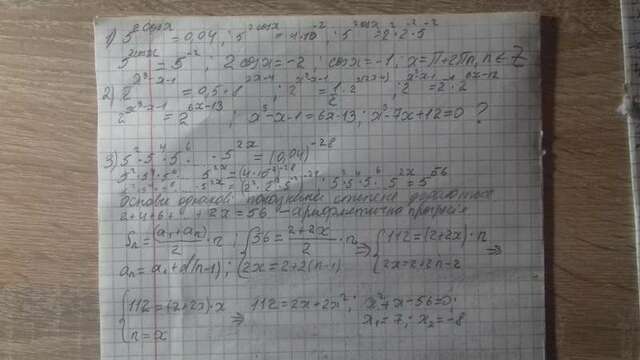 1) 5^{2cosx} = 0,04 ; 5^{2cosx} = 4·10^{-2} ; 5^{2cosx} = 2^2·2^{-2}·5^{-2}
5^{2cosx} = 5^{-2} ; 2cosx = -2 ; cosx = -1, x = π + 2πn, n ∈ Z
2) 2^{x^3-x-1} = 0,5·8^{2x-4} ; 2^{x^3-x-1} = \frac{1}{2}·2^{3(2x-4)} ; 2^{x^3-x-1} = 2^{-1}·2^{6x-12}
2^{x^3-x-1} = 2^{6x-13} ; x^3-x-1 = 6x-13 ; x^3-7x+12=0 ?
3) 5^2·5^4·5^6· ... ·5^{2x} = (0,04)^{-28}
5^2·5^4·5^6· ... ·5^{2x} = (4·10^{-2})^{-28}
5^2·5^4·5^6· ... ·5^{2x} = (2^2·2^{-2}·5^{-2})^{-28} ; 5^2·5^4·5^6· ... 5^{2x} = 5^{56}
Основи однакові показники степеня
2+4+6+ ... +2x = 56 - арифметична прогресія
S_n = \frac{(a_1+a_n)}{2}·n ; { 56 = \frac{2+2x}{2}·n ⇒ { 112 = (2+2x)·n ⇒
a_n = a_1+d(n-1) ; { 2x = 2+2(n-1) { 2x = 2+2n-2
{ 112 = (2+2x)·x 112 = 2x+2x^2 ; x^2+x-56=0;
{ n = x ⇒ x_1 = 7 ; x_2 = -8